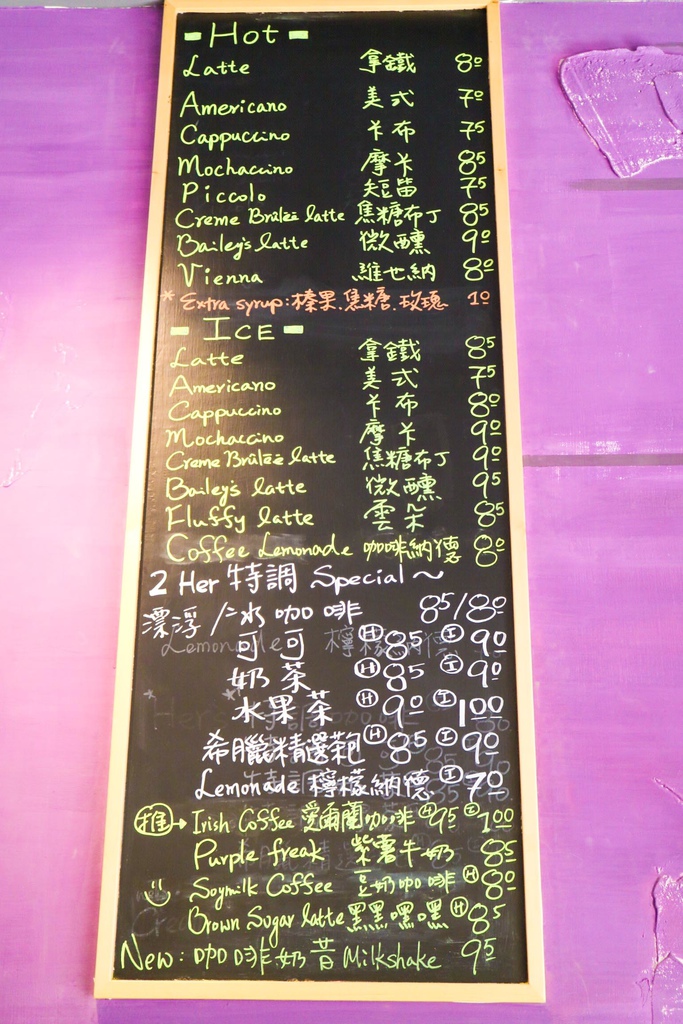 Hot
Latte 拿鐵 80
Americano 美式 70
Cappuccino 卡布 75
Mochaccino 摩卡 85
Piccolo 短笛 75
Creme Brûlée latte 焦糖布丁 85
Bailey's latte 微醺 90
Vienna 維也納 80
* Extra syrup: 榛果.焦糖.玫瑰 10
ICE
Latte 拿鐵 85
Americano 美式 75
Cappuccino 卡布 80
Mochaccino 摩卡 90
Creme Brûlée latte 焦糖布丁 90
Bailey's latte 微醺 95
Fluffy latte 雲朵 85
Coffee Lemonade 咖啡納德 80
2 Her 特調 Special~
漂浮/冰咖啡 85/80
可可 H 85 I 90
奶茶 H 85 I 90
水果茶 H 90 I 100
希臘精選 H 85 I 90
Lemonade 檸檬納德 I 70
推→ Irish Coffee 愛爾蘭咖啡 H 95 I 100
Purple freak 紫薯牛奶 85
Soymilk Coffee 豆奶咖啡 H 80
Brown Sugar latte 黑黑嘿嘿 H 85
New: 咖啡奶昔 Milkshake 95